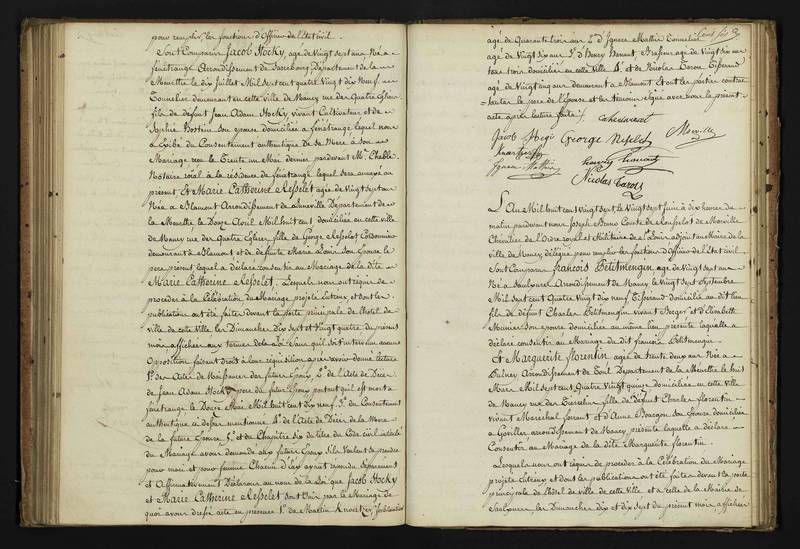 pour remplir les fonctions d'Officier de l'état civil.
Sont Comparus Jacob Hocky, agé de Vingt sept ans Né a
fénétrange Arrondissement de Sarrebourg, Département de la
Meurthe le dix Juillet Mil sept cent quatre Vingt dix Neuf
Tonnelier demeurant en cette ville de Nancy rue des Quatre Eglises
fils de défunt Jean Adam Hocky, vivant Cultivateur et de
Sophie son épouse domiciliée a fénétrange, lequel nous
a Exibé du Consentement authentique de sa Mère à son
Mariage reçu le trente un Mai dernier pardevant Me Chable
Notaire roïal à la résidence de fénétrange lequel sera annexé au
présent Et Marie Catherine Nesselet agée de Vingt sept ans
Née a Blamont Arrondissement de Lunéville Département de
la Meurthe, le Douze Avril Mil huit cent domiciliée en cette ville
de Nancy rue des Quatre Eglises, fille de George Nesselet Cordonnier
demeurant a Blamont et de défunte Marie son épouse le
père présent lequel a déclaré consentir au Mariage de la dite
Marie Catherine Nesselet. Lesquels nous ont requis de
procéder à la Célébration du Mariage projetté entr'eux, et dont les
publications ont été faites devant la porte principale de l'hôtel de
ville de cette ville les Dimanches Dix sept et Vingt quatre du présent
mois, affichées aux termes de la loi. Sans qu'il soit intervenu aucune
Opposition faisant droit à leur réquisition après avoir donné lecture
1° des Actes de Naissance des futurs Epoux 2° de l'Acte de Décès
de Jean Adam Hocky père du futur Epoux portant qu'il est mort a
fénétrange le Douze Mai Mil huit cent dix neuf 3° du Consentement
authentique ci dessus mentionné 4° de l'Acte de Décès de la Mère
de la future Epouse 5° et du Chapitre six du titre du Code civil intitulé
du Mariage avons demandé aux futurs Epoux s'ils Veulent se prendre
pour mari et pour femme Chacun d'eux ayant répondu séparément
et Affirmativement Déclarons au nom de la Loi que Jacob Hocky
et Marie Catherine Nesselet sont Unis par le Mariage de
quoi avons dressé acte en présence 1° de Martin Knoertzer
agé de Quarante trois ans 2° d'Ignace Mathis Tonnelier
agé de Vingt six ans 3° d'Henry Brasseur agé de Vingt six ans
tous trois domiciliés en cette Ville 4° et de Nicolas Tisserand
agé de Vingt cinq ans demeurant a Blamont Et ont les parties contractantes
le père de l'épouse et les témoins signé avec nous le présent
acte après lecture faite.
Jacob Hogi George Nesselet Morville
Ignace Mathis
Nicolas
L'an Mil huit cent Vingt sept, le Vingt sept Juin à dix heures du
matin pardevant nous Joseph Comte de Morville
Chevalier de l'Ordre royal et Militaire de St Louis adjoint au Maire de la
ville de Nancy délégué pour remplir les fonctions d'Officier de l'état Civil
Sont Comparus François Petitmengin, agé de Vingt sept ans
Né a Saulxures Arrondissement de Nancy le vingt sept Septembre
Mil sept cent Quatre Vingt dix neuf Tisserand domicilié au dit lieu
fils de défunt Charles Petitmengin vivant Berger et d'Elisabeth
Munier son épouse domiciliée au même lieu, présente laquelle a
déclaré consentir au Mariage du dit François Petitmengin
Et Marguerite Florentin agée de trente deux ans Née a
Arrondissement de Toul Département de la Meurthe le huit
Mars Mil sept cent Quatre Vingt quinze domiciliée en cette ville
de Nancy rue des fille de Défunt Charles florentin
vivant Maréchal ferrant et d'Anne Bourgon son épouse domiciliée
a Goviller arrondissement de Nancy présente laquelle a déclaré
Consentir au Mariage de la dite Marguerite florentin.
Lesquels nous ont requis de procéder à la Célébration du Mariage
projetté entr'eux et dont les publications ont été faites devant la porte
principale de l'hôtel de ville de cette Ville et a celle de la Mairie de
Saulxures les Dimanches dix et dix sept du présent mois, affichées